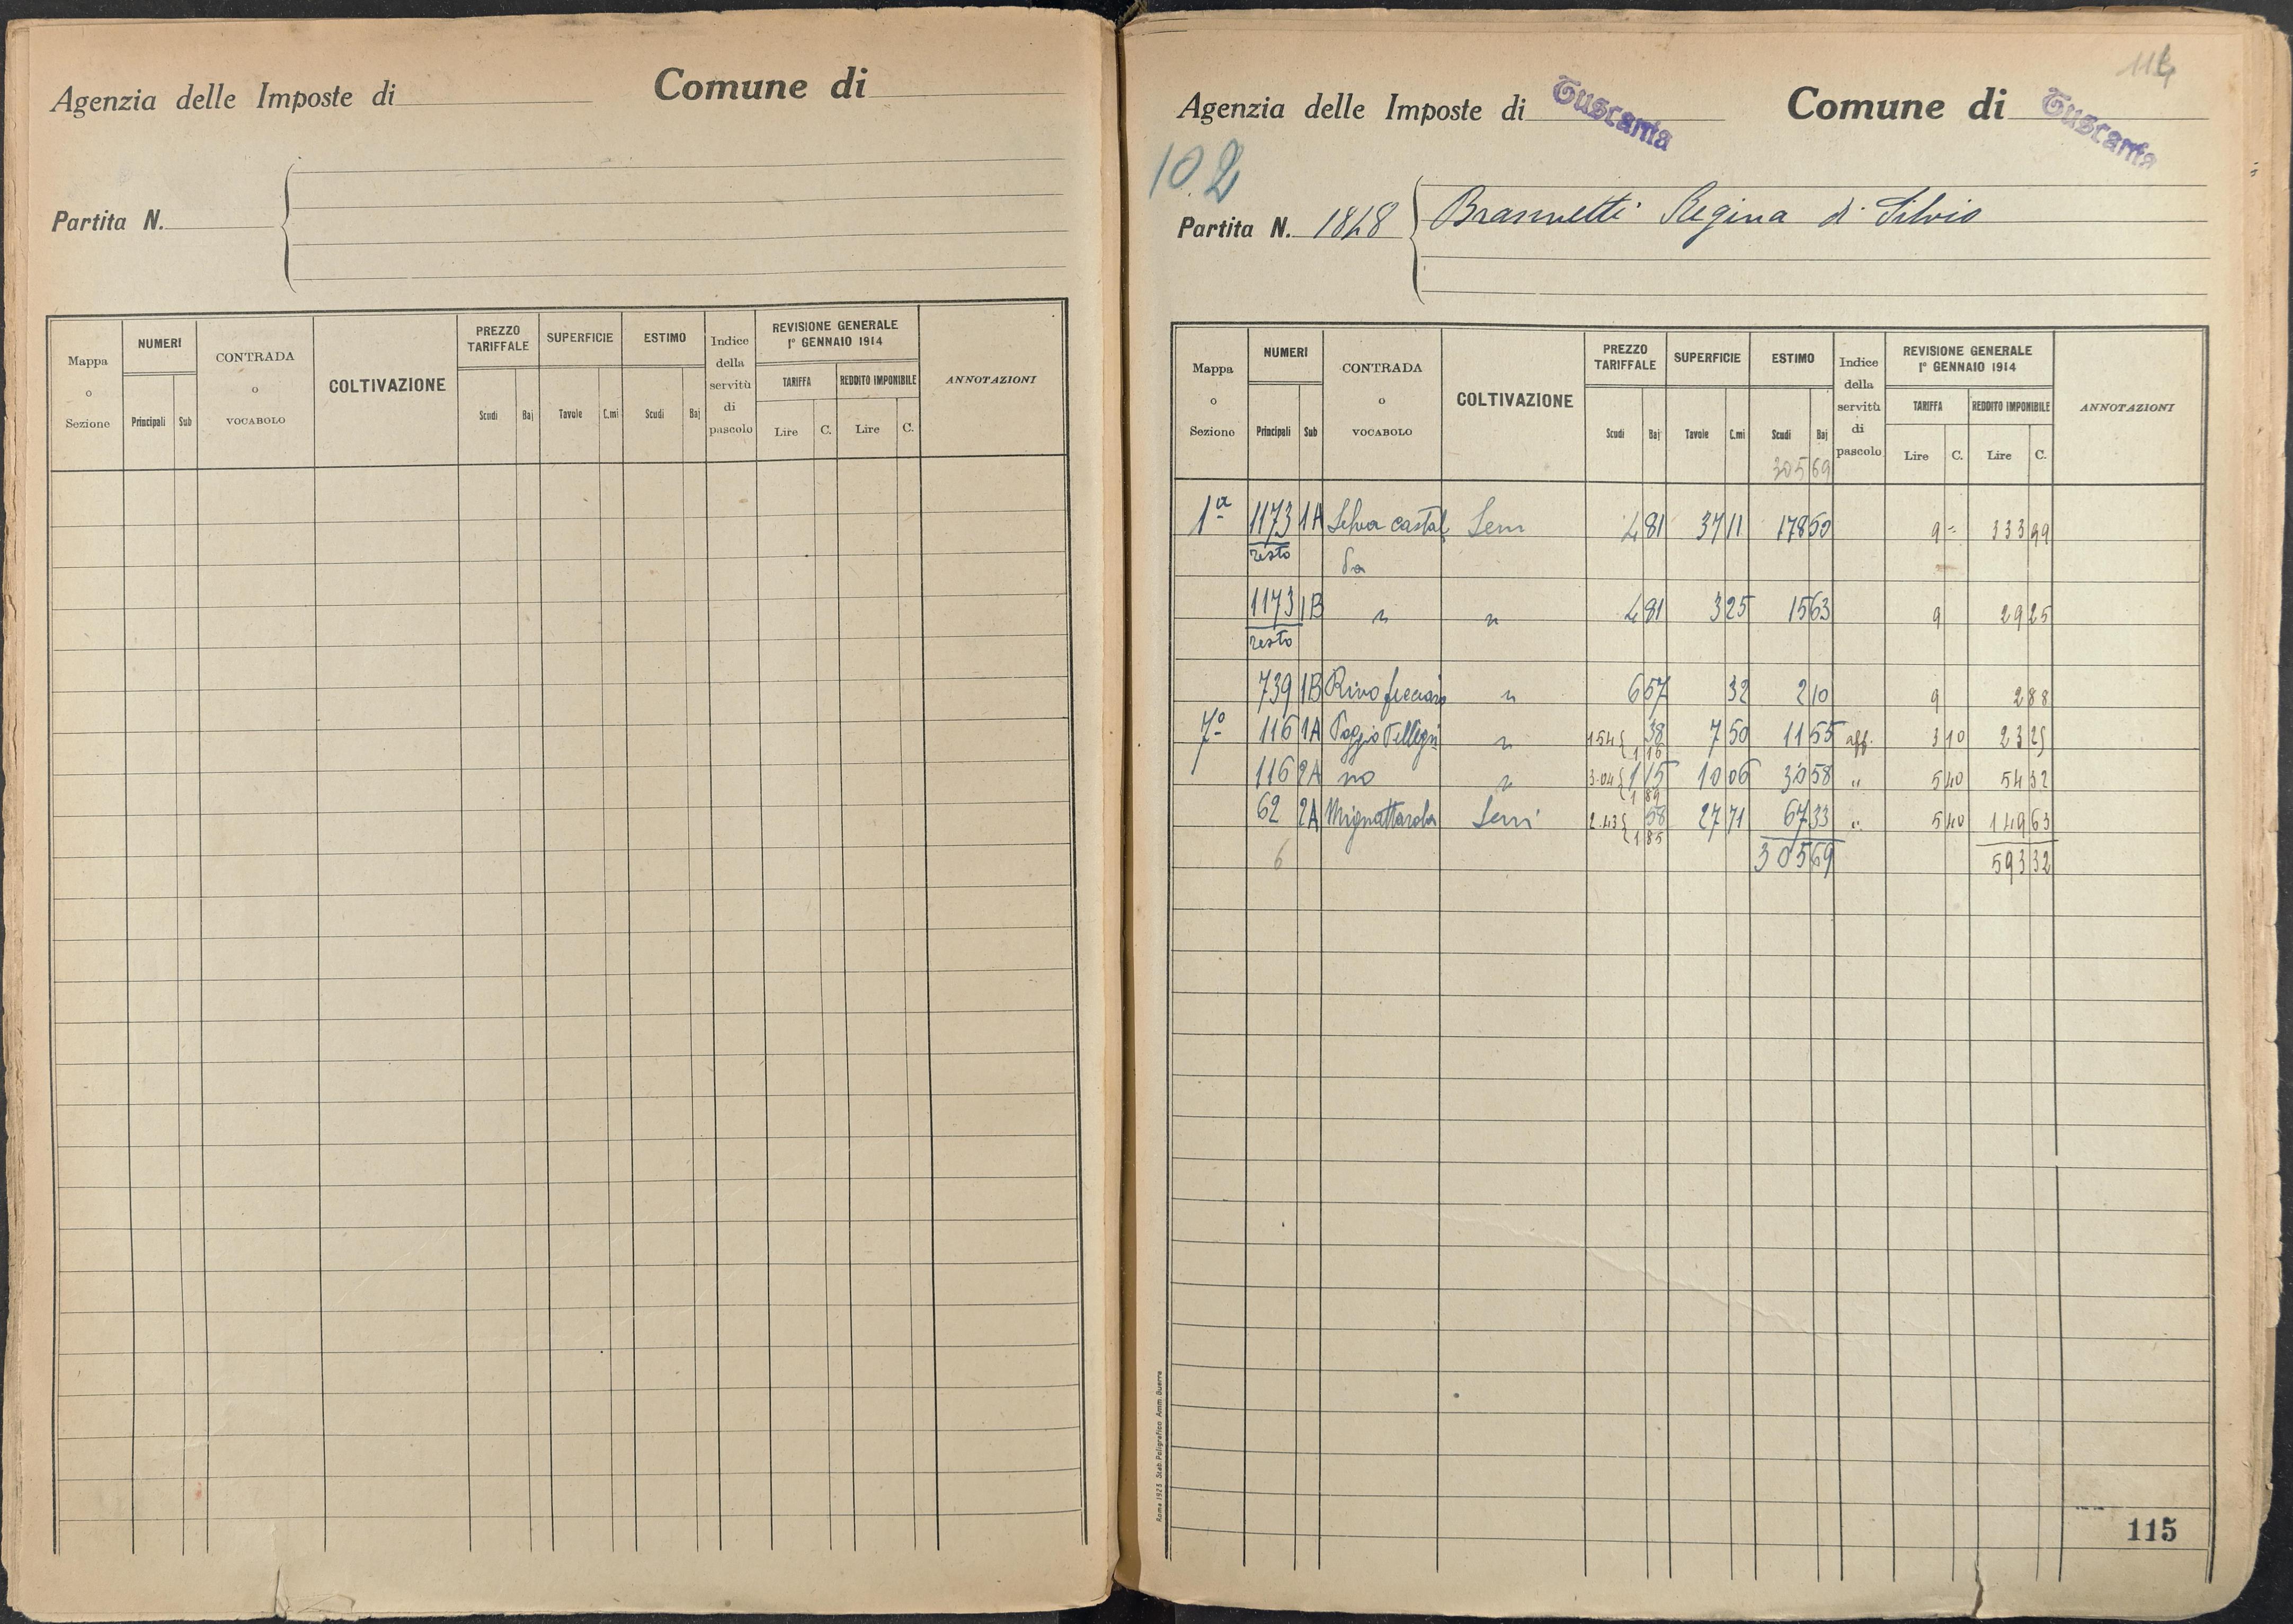 Agenzia delle Imposte di
Comune di
Partita N.
Mappa o Sezione
NUMERI
Principali Sub
CONTRADA o VOCABOLO
COLTIVAZIONE
PREZZO TARIFFALE
Scudi Baj
SUPERFICIE
Tavole C.mi
ESTIMO
Scudi Baj
Indice della servitù di pascolo
REVISIONE GENERALE
1º GENNAIO 1914
TARIFFA
Lire C.
REDDITO IMPONIBILE
Lire C.
ANNOTAZIONI
114
Agenzia delle Imposte di Tuscania
Comune di Tuscania
102
Partita N. 1828 Regina di Silvio
Mappa o Sezione
NUMERI
Principali Sub
CONTRADA o VOCABOLO
COLTIVAZIONE
PREZZO TARIFFALE
Scudi Baj
SUPERFICIE
Tavole C.mi
ESTIMO
Scudi Baj
305 69
Indice della servitù di pascolo
REVISIONE GENERALE
1º GENNAIO 1914
TARIFFA
Lire C.
REDDITO IMPONIBILE
Lire C.
ANNOTAZIONI
1ª 1173 1A Selva castal Sem 4 81 37 11 178 50 9 = 333 99
resto da
1173 1B " " 4 81 3 25 15 63 9 29 25
resto
739 1B Rivo " 6 57 32 2 10 9 2 88
7º 116 1A Poggio Pellegri " 1 54 { 38 7 50 11 55 aff. 3 10 23 25
1 16
116 2A no " 3.04 { 1 15 10 06 30 58 " 5 40 54 32
1 89
62 2A Mignattarola Sem 2.43 { 58 27 71 67 33 " 5 40 149 63
1 85
6 305 69 593 32
Roma 1925 Stab. Poligrafico Amm. Guerra
115